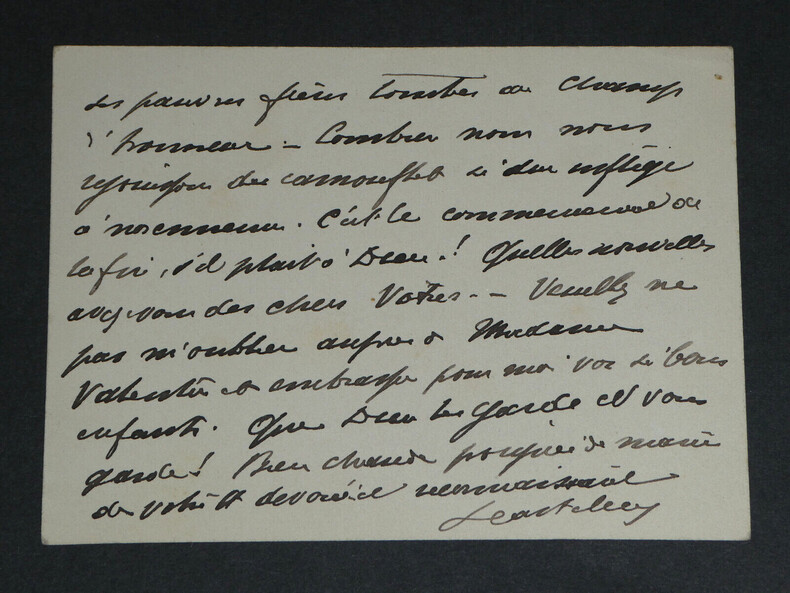 des pauvres frères tombés au champ
d'honneur — Combien nous nous
réjouissons des camouflets si dur infligé
à nos ennemis. C'est le commencement de
la fin, s'il plait à Dieu! Quelles nouvelles
avez vous des chers Vôtres. — Veuillez ne
pas m'oublier auprès de Madame
Valentin et embrasser pour moi vos si bons
enfants. Que Dieu les garde et vous
garde! Bien chaude poignée de main
de votre dévoué et reconnaissant